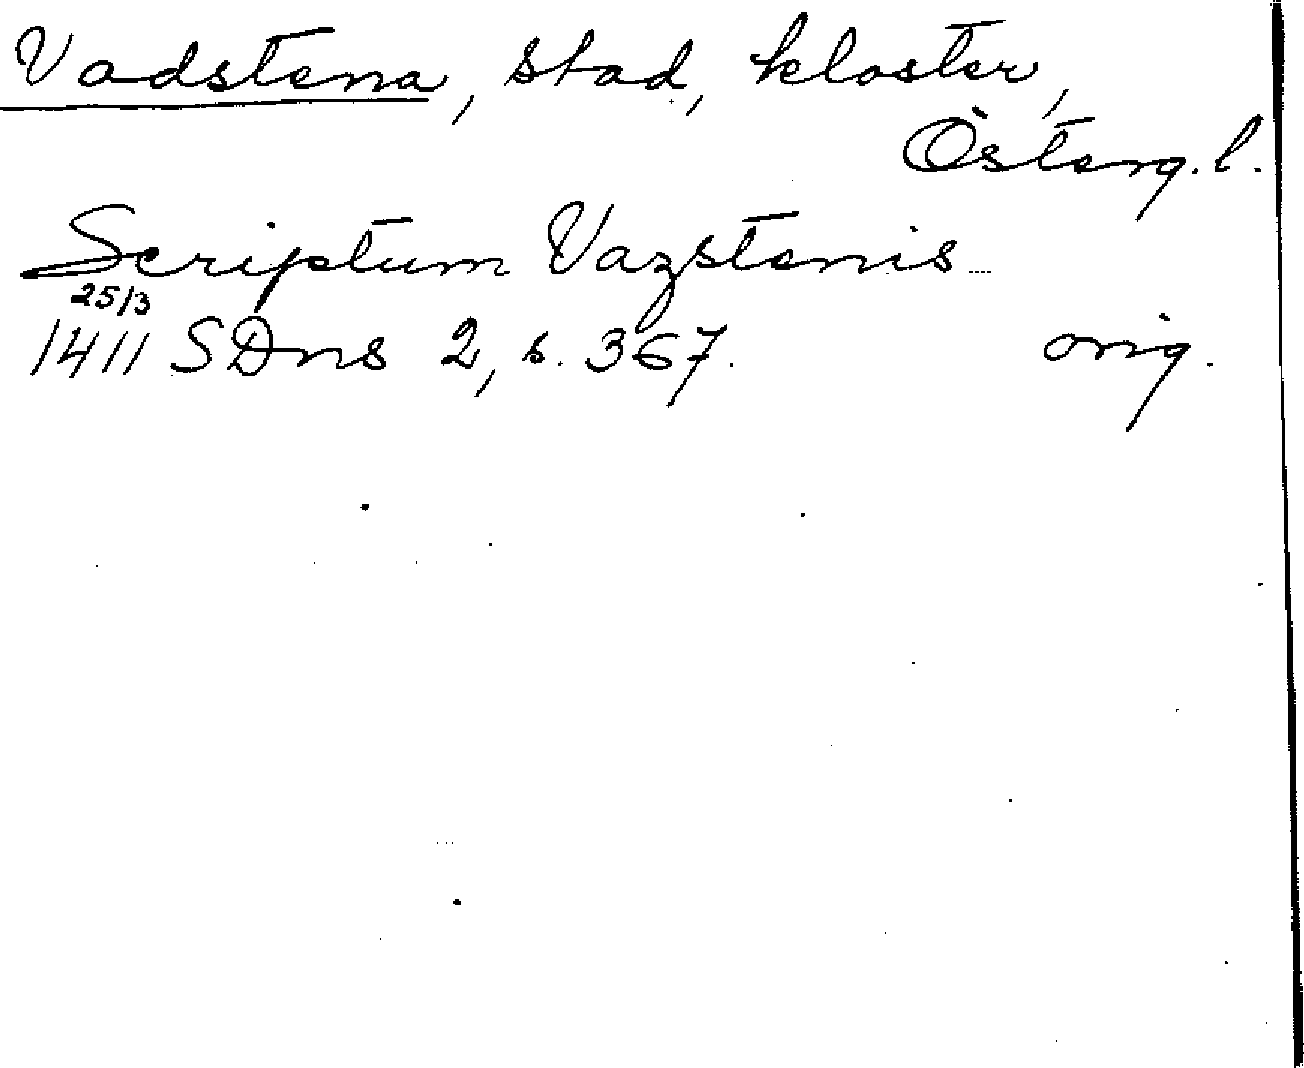 Vadstena, stad, kloster,
Österg. l.
Scriptum Vazstenis
25/3
1411 SDns 2, s. 367. orig.